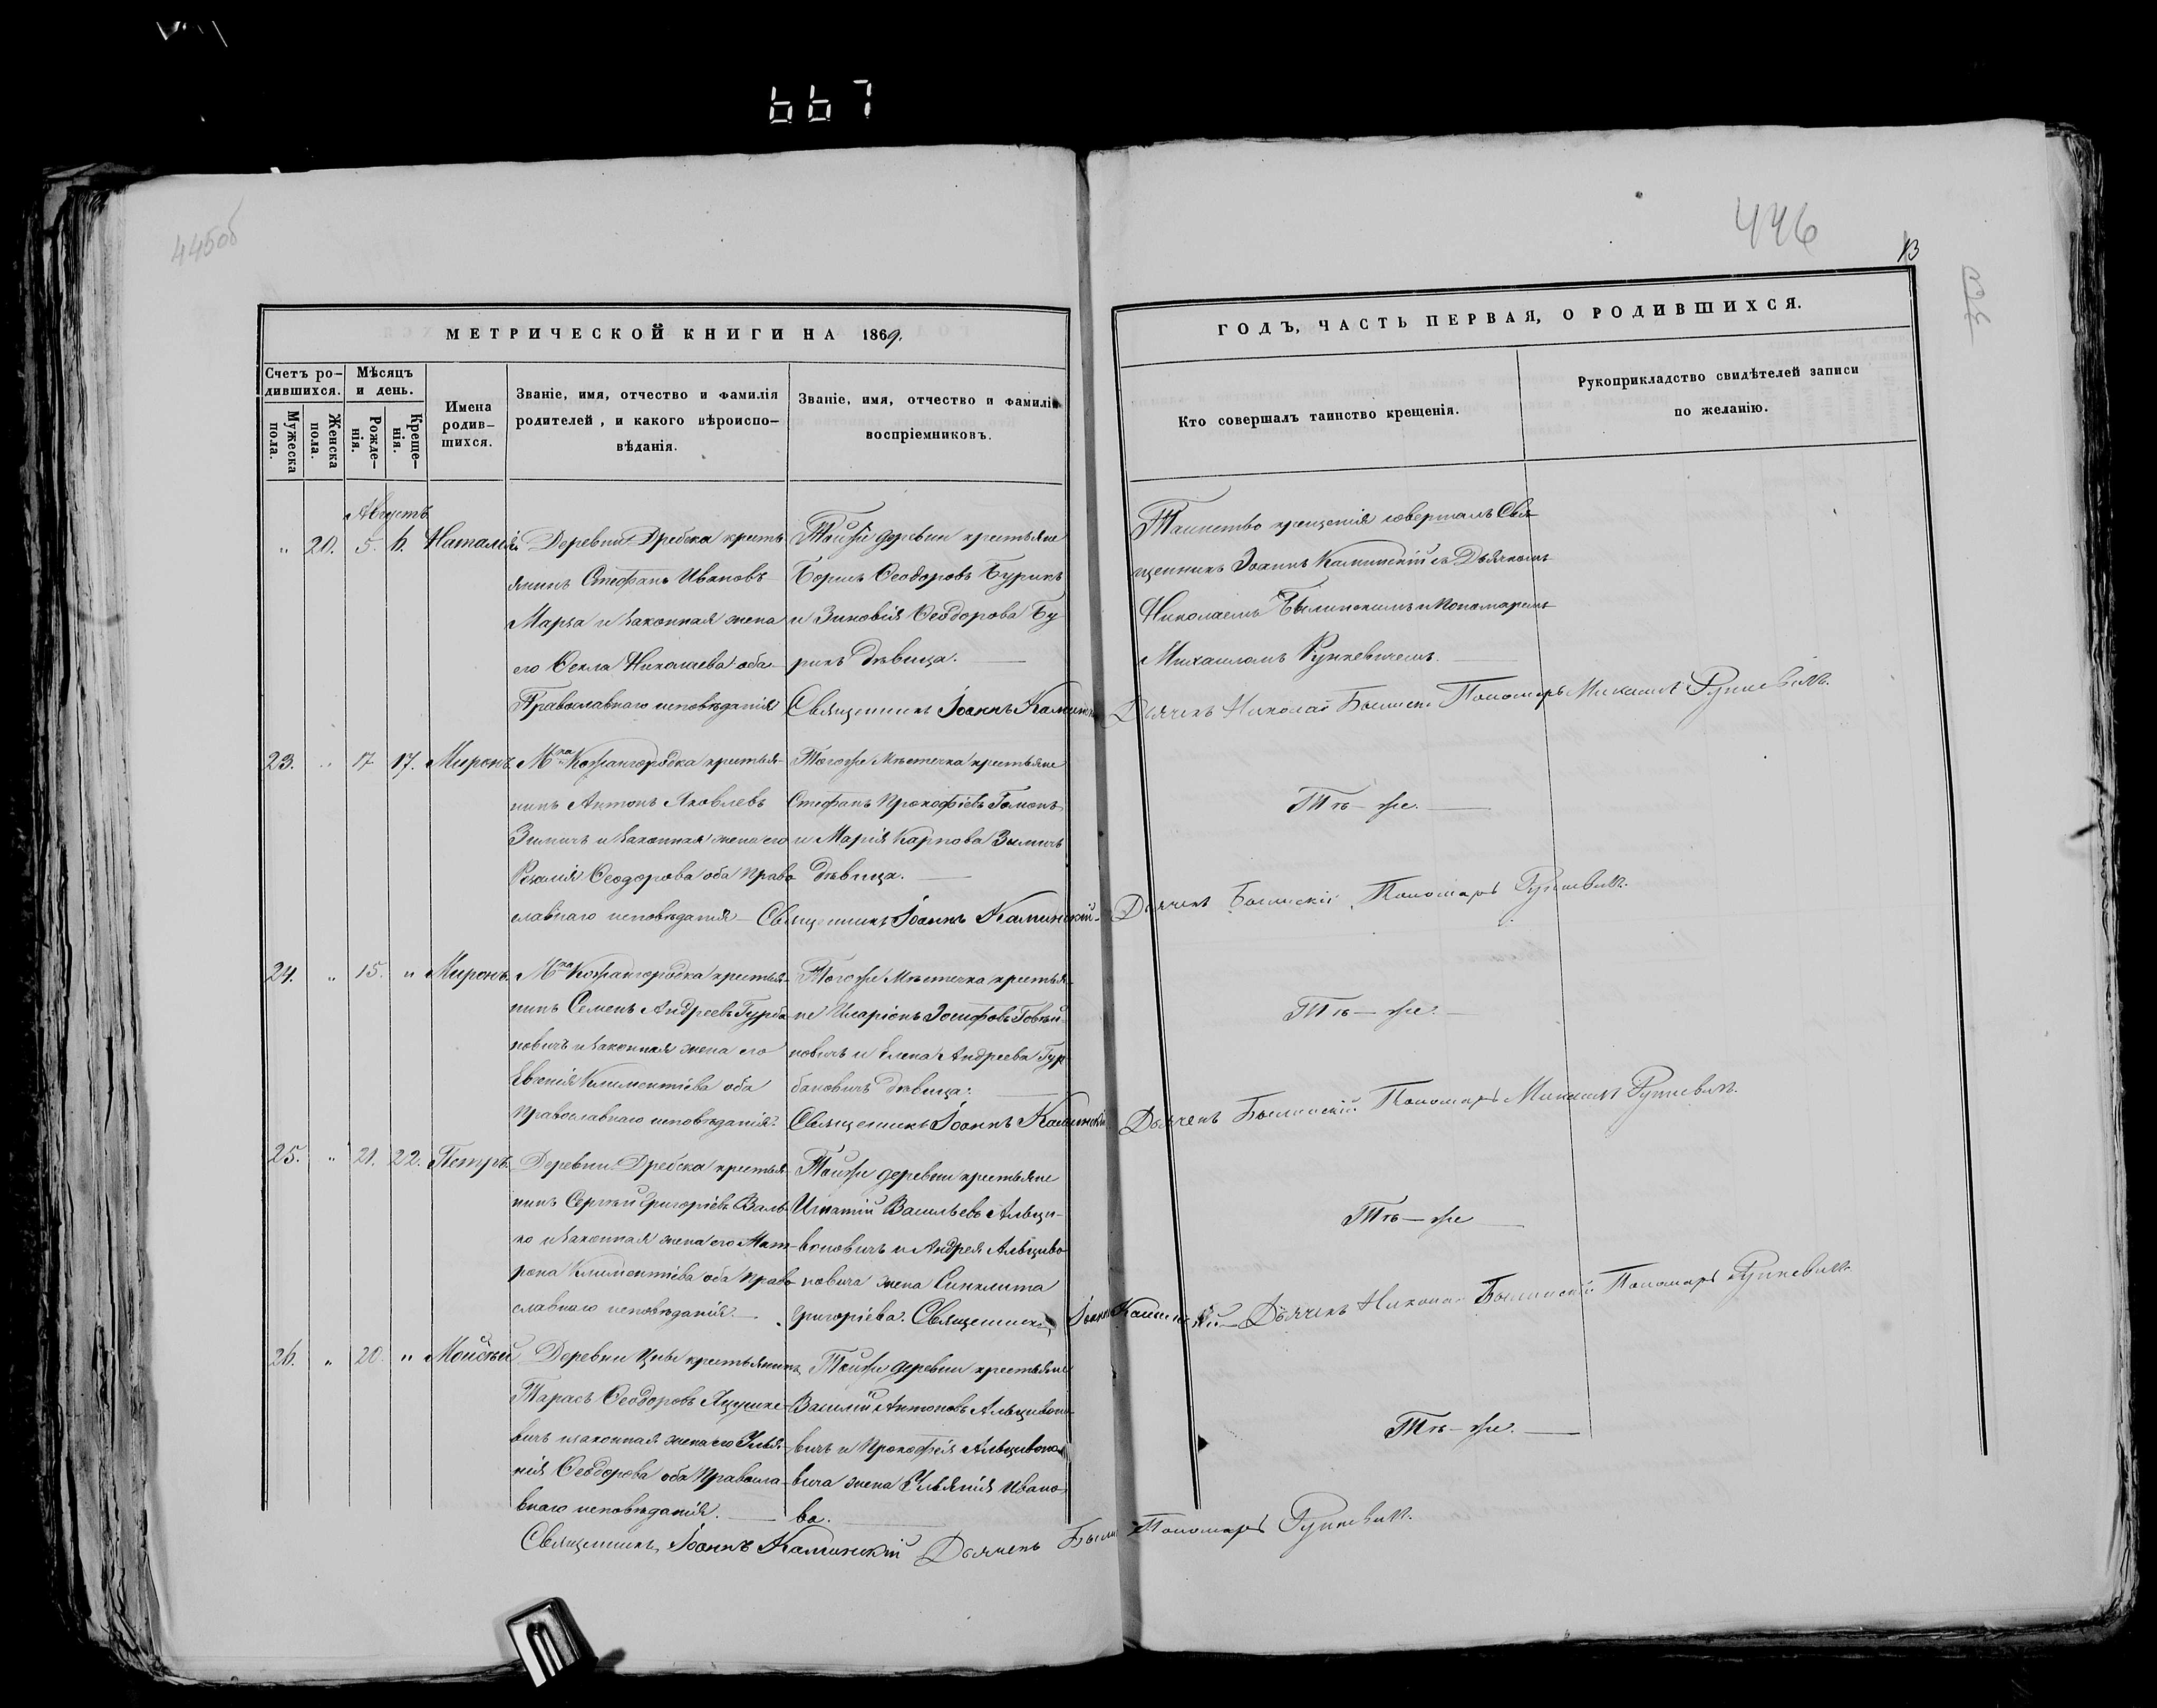 667
445об
446
13
МЕТРИЧЕСКОЙ КНИГИ НА 1869.
ГОДЪ, ЧАСТЬ ПЕРВАЯ, О РОДИВШИХСЯ.
Счетъ ро-
дившихся.
Мужеска
пола.
Женска
пола.
Мѣсяцъ
и день.
Рожде-
нія.
Креще-
нія.
Имена
родив-
шихся.
Званіе, имя, отчество и фамилія
родителей, и какого вѣроиспо-
вѣданія.
Званіе, имя, отчество и фамилія
воспріемниковъ.
Кто совершалъ таинство крещенія.
Рукоприкладство свидѣтелей записи
по желанію.
Августъ
" 20. 5. 6. Наталія
Деревни Дребска кресть
янинъ Стефанъ Ивановъ
Марза и законная жена
его Ѳекла Николаева оба
Православнаго исповѣданія
Тойже деревни крестьяне
Борисъ Ѳеодоровъ Бурикъ
и Зиновія Ѳеодорова Бу
рикъ дѣвица.
Таинство крещенія совершалъ Свя
щенникъ Іоаннъ Каминскій съ Дьячкомъ
Николаемъ Былинскимъ и Пономаремъ
Михаиломъ Рункевичемъ.
Священникъ Іоаннъ Каминскій Дьячекъ Николай Пономарь Михаилъ Рункевичъ.
23. " 17. 17. Миронъ.
Мка Кожангородка крестья-
нинъ Антонъ Яковлевъ
Зимичъ и законная жена его
Ѳеодорова оба Право
славнаго исповѣданія
Тогоже мѣстечка крестьяне
Стефанъ Прокофіевъ Гомонъ
и Марія Карпова Зимичъ
дѣвица.
Тѣ-же.
Священникъ Іоаннъ Каминскій Дьячекъ Былинскій Пономарь Рункевичъ.
24. " 15. " Миронъ.
Мка Кожангородка крестья-
нинъ Семенъ Андреевъ Гурба
новичъ и законная жена его
Евгенія Климентіева оба
Православнаго исповѣданія.
Тогоже мѣстечка крестья-
не Иларіонъ Іосифовъ
новичъ и Елена Андреева Гур
бановичъ дѣвица:
Тѣ-же.
Священникъ Іоаннъ Каминскій Дьячекъ Былинскій Пономарь Михаилъ Рункевичъ.
25. " 21. 22. Петръ.
Деревни Дребска крестья
нинъ Сергѣй Григоріевъ Валь
ко и законная жена его Мат-
рона Климентіева оба Право
славнаго исповѣданія.
Тойже деревни крестьяне
Игнатій Васильевъ Альци-
воновичъ и Андрея Альциво
новича жена Синклита
Григоріева.
Тѣ-же
Священникъ Іоаннъ Каминскій Дьячекъ Николай Былинскій Пономарь Рункевичъ.
26. " 20. " Моисѣй
Деревни Цны крестьянинъ
Тарасъ Ѳеодоровъ Яцушке-
вичъ и законная жена его Улья
нія Ѳеодорова оба Правосла-
внаго исповѣданія.
Тойже деревни крестьяне
Василій Антоновъ Альцивоно-
вичъ и Прокофія Альцивоно
вича жена Ульянія Ивано
ва.
Тѣ-же.
Священникъ Іоаннъ Каминскій Дьячекъ Пономарь Рункевичъ.